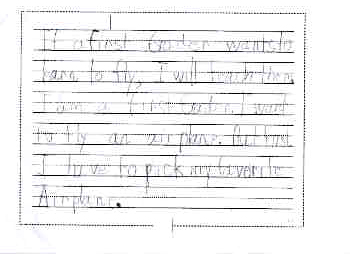 If a first Grader wants to
learn to fly, I will teach them.
I am a first Grader. I want
to fly an airplane. But first
I have to pick my favorite
Airplane.